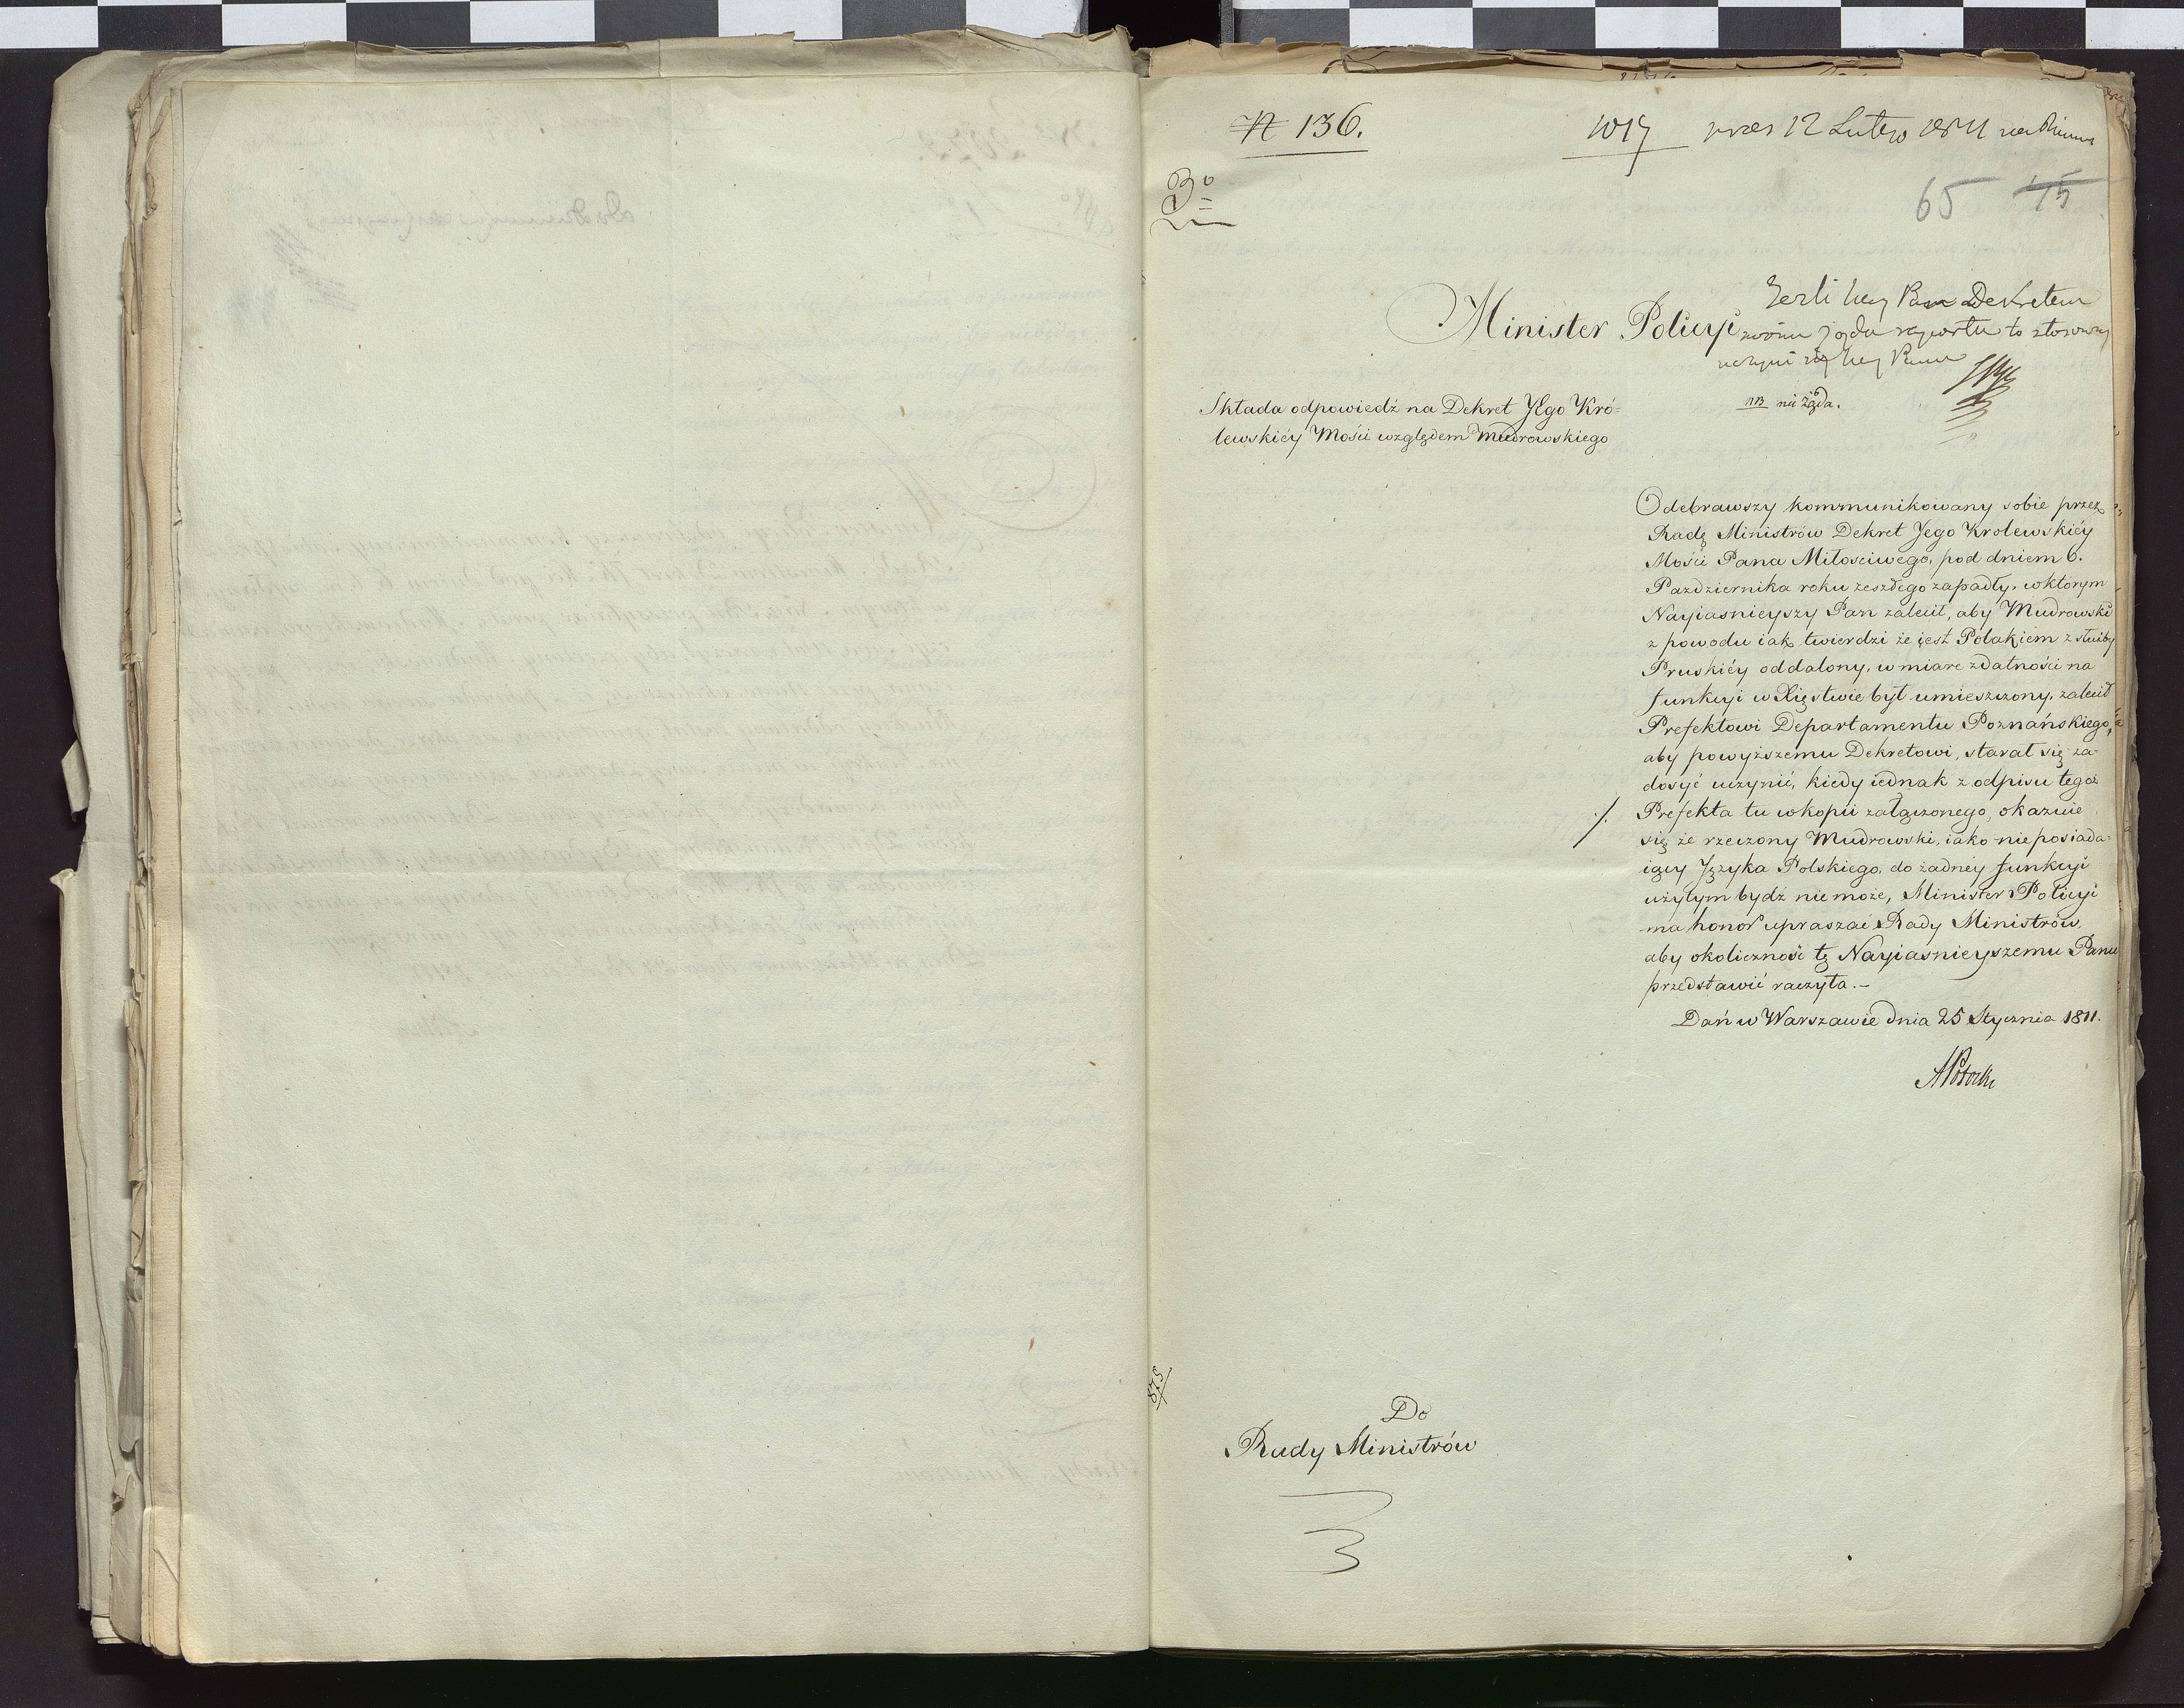 N 136.
1017 prez 12 Lutego 1811
3o
65 45
Dekretem
Minister Policyi
raportu to
NB nie żąda.
Składa odpowiedź na Dekret JEgo Kró-
lewskiéy Mości względem Mudrowskiego
Odebrawszy kommunikowany sobie przez
Radę Ministrów Dekret Jego Krolewskiéy
Mości Pana Miłosciwego, pod dniem 6.
Pazdziernika roku zeszłego zapadły, w którym
Nayiasnieyszy Pan zalecił, aby Mudrowski
z powodu iak twierdzi że iest Polakiem z służby
Pruskiéy oddalony, w miarę zdatności na
funkcyi w Xięstwie był umieszczony, zalecił
Prefektowi Departamentu Poznańskiego,
aby powyższemu Dekretowi, starał się za-
dosyć uczynić, kiedy iednak z odpisu tegoż
./. Prefekta tu w kopii załączonego, okazuie
się że rzeczony Mudrowski, iako nie posiada-
iący Języka Polskiego, do żadney funkcyi
użytym bydź nie może, Minister Policyi
ma honor upraszać Rady Ministrów,
aby okoliczność tę Nayiasnieyszemu Panu
przedstawić raczyła.-
Dań w Warszawie dnia 25 Stycznia 1811.
APotocki
875
Do
Rady Ministrów